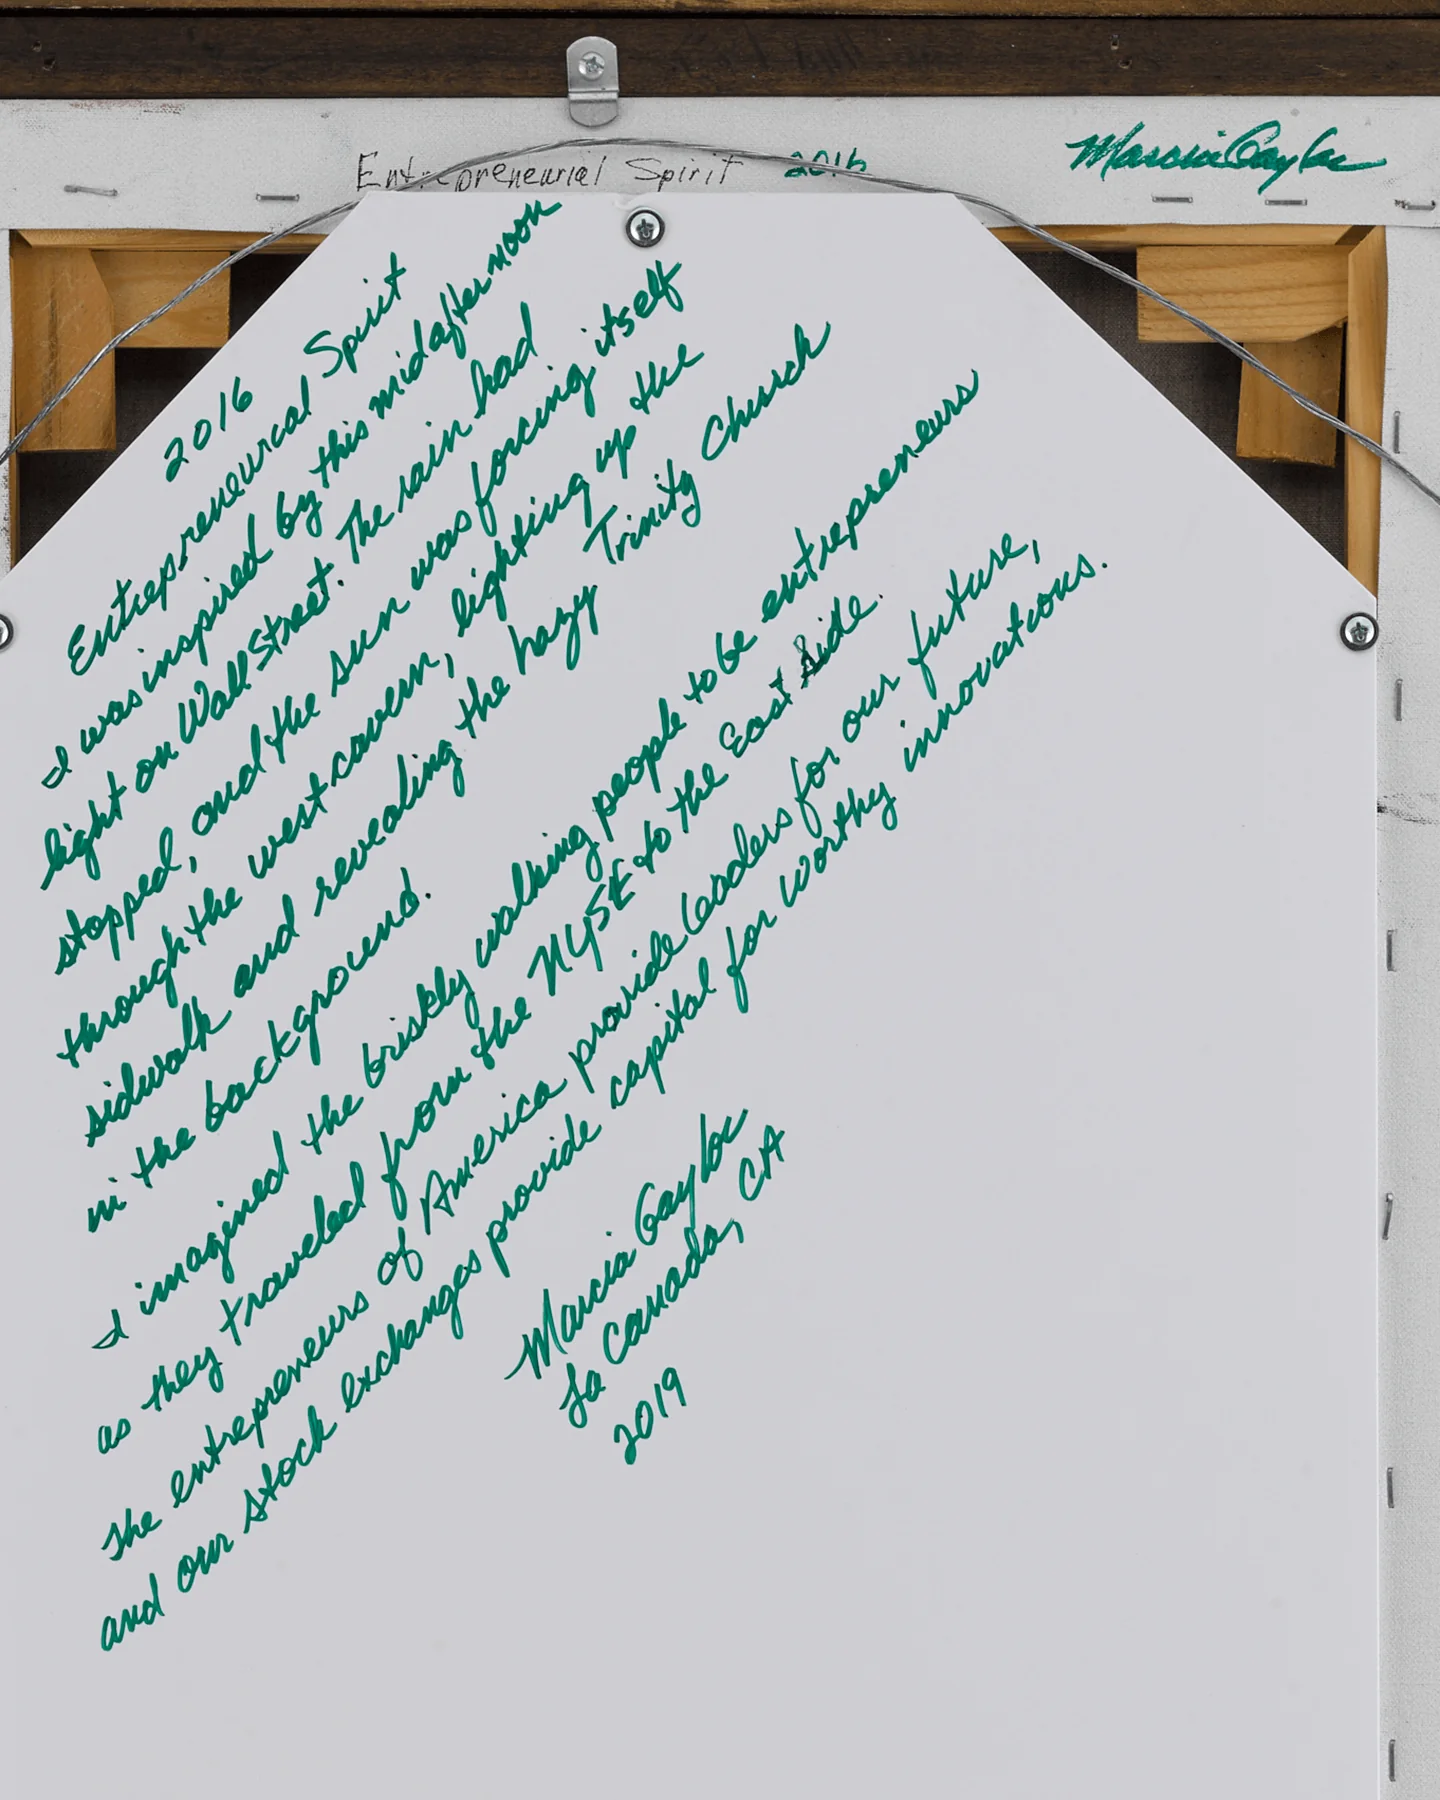 Entrepreneurial Spirit 2016
Marcia Gaylor
2016
Entrepreneurcal Spirit
I was inspired by this mid afternoon
light on Wall Street. The rain had
stopped, and the sun was forcing itself
through the west cavern, lighting up the
sidwalk and revealing the hazy Trinity Church
in the background.
I imagined the briskly walking people to be entrepreneurs
as they traveled from the NYSE to the East Side.
The entrepreneurs of America provide leaders for our future,
and our stock exchanges provide capital for worthy innovations.
Marcia Gaylor
La Canada, CA
2019